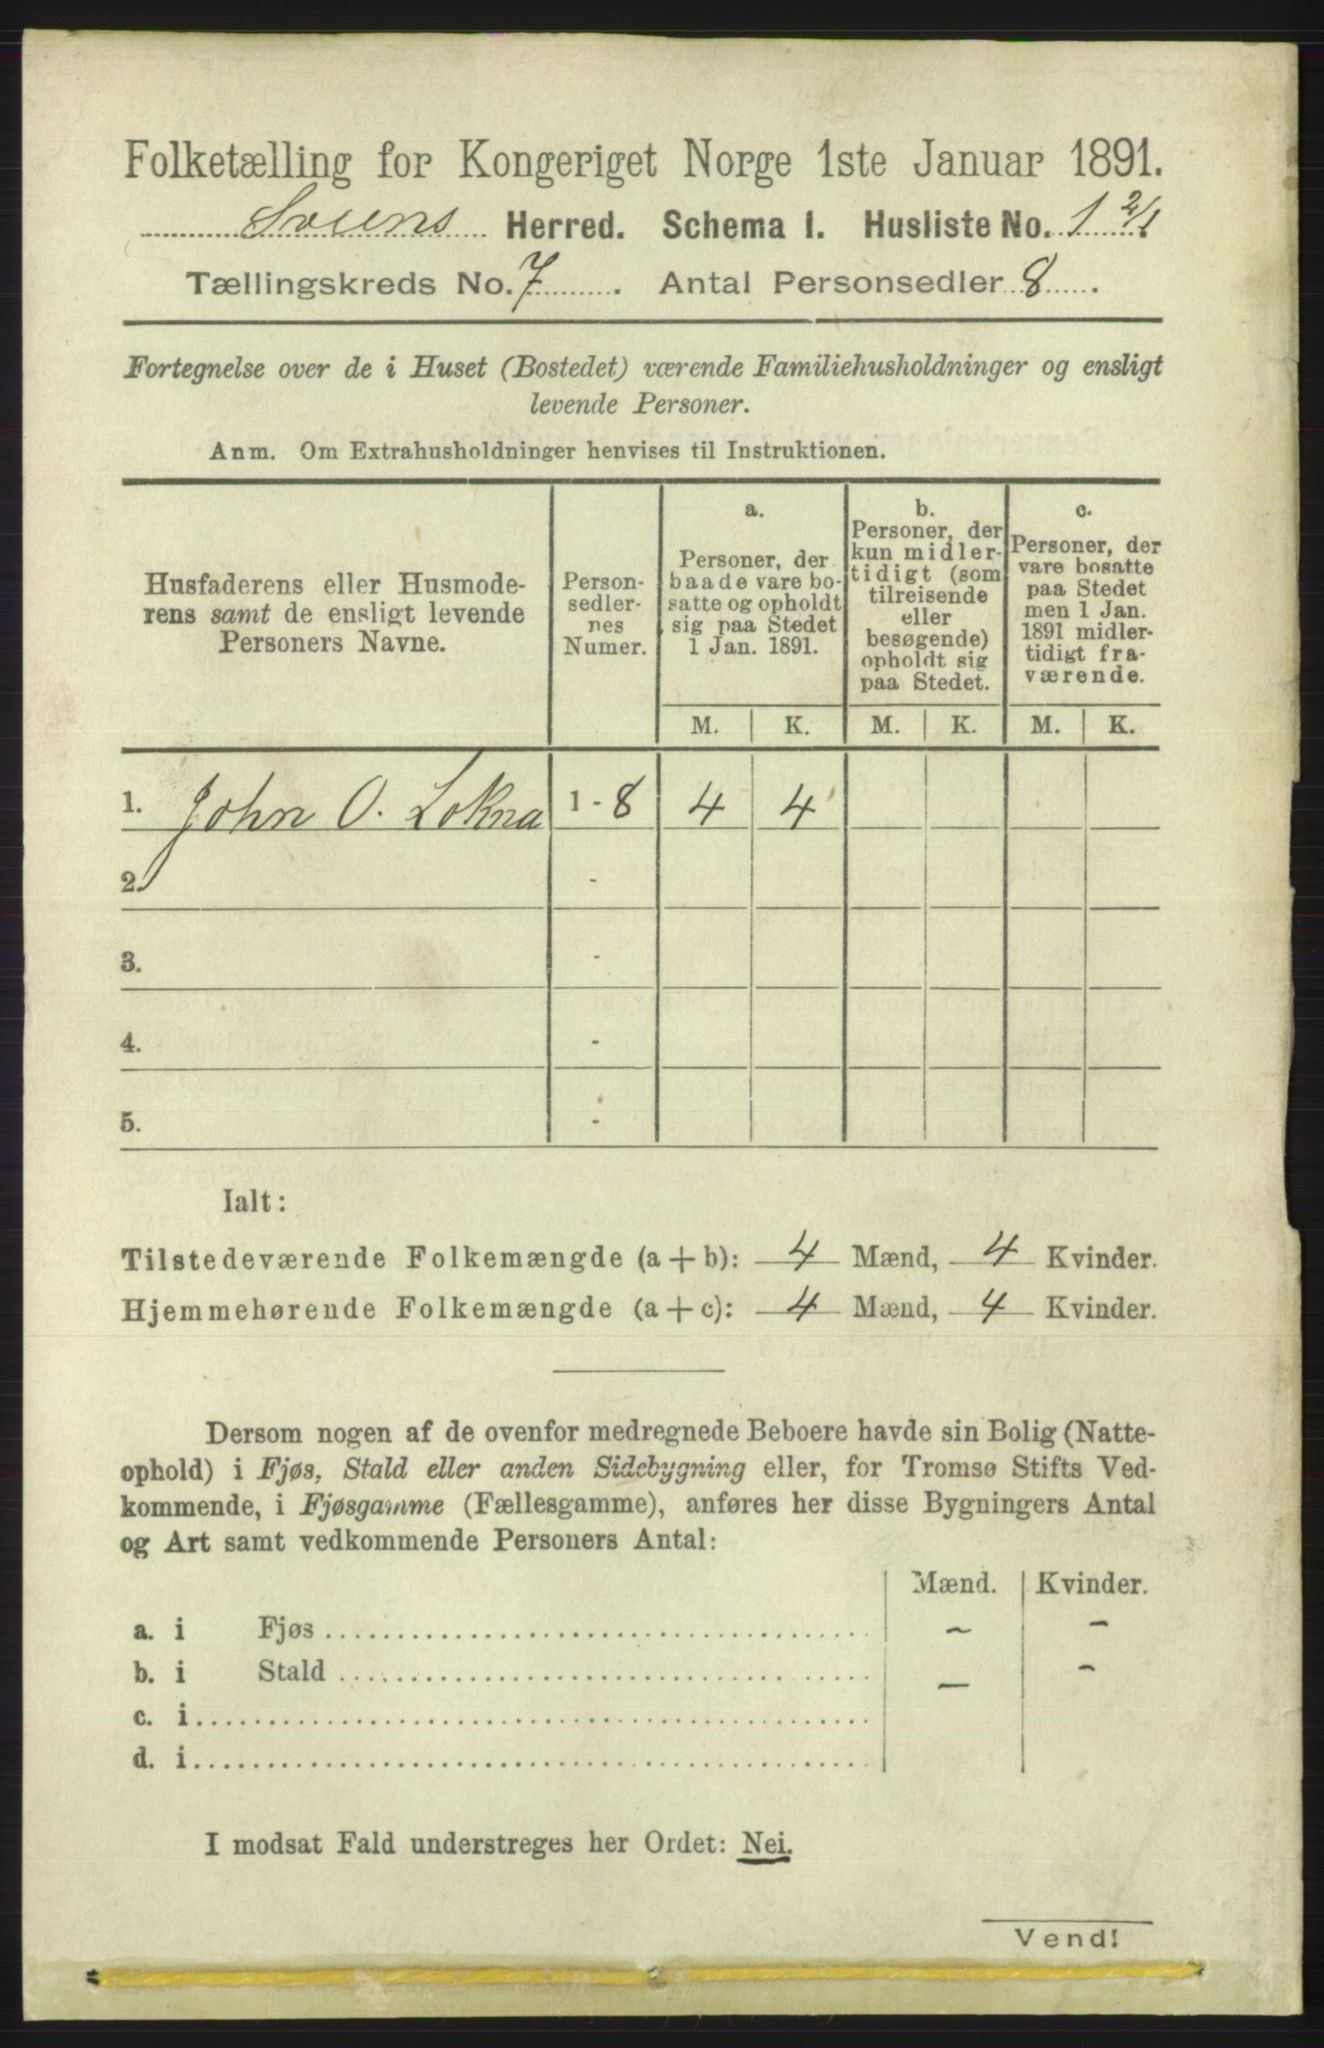 Folketælling for Kongeriget Norge 1ste Januar 1891.
Sveens Herred. Schema 1. Husliste No. 1 2/1
Tællingskreds No. 7. Antal Personsedler 8.
Fortegnelse over de i Huset (Bostedet) værende Familiehusholdninger og ensligt
levende Personer.
Anm. Om Extrahusholdninger henvises til Instruktionen.
Husfaderens eller Husmode-
rens samt de ensligt levende
Personers Navne.
Person-
sedler-
nes
Numer.
a.
Personer, der
baade vare bo-
satte og opholdt
sig paa Stedet
1 Jan. 1891.
b.
Personer, der
kun midler-
tidigt (som
tilreisende
eller
besøgende)
opholdt sig
paa Stedet.
c.
Personer, der
vare bosatte
paa Stedet
men 1 Jan.
1891 midler-
tidigt fra-
værende.
M. K. M. K. M. K.
1. John O. Lokna 1 - 8 4 4
2. -
3. -
4. -
5. -
Ialt:
Tilstedeværende Folkemængde (a + b): 4 Mænd, 4 Kvinder.
Hjemmehørende Folkemængde (a + c): 4 Mænd, 4 Kvinder.
Dersom nogen af de ovenfor medregnede Beboere havde sin Bolig (Natte-
ophold) i Fjøs, Stald eller anden Sidebygning eller, for Tromsø Stifts Ved-
kommende, i Fjøsgamme (Fællesgamme), anføres her disse Bygningers Antal
og Art samt vedkommende Personers Antal:
Mænd. Kvinder.
a. i Fjøs - -
b. i Stald - -
c. i
d. i
I modsat Fald understreges her Ordet: Nei.
Vend!